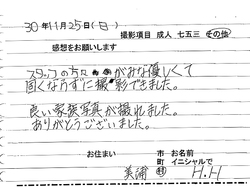 30年11月25日(日) 撮影項目 成人 七五三 その他
感想をお願いします
スタッフの方々がみな優しくて
固くならずに撮影できました。
良い家族写真が撮れました。
ありがとうございました。
お住まい 市 お名前
美浦 町 イニシャルで
村 H.H